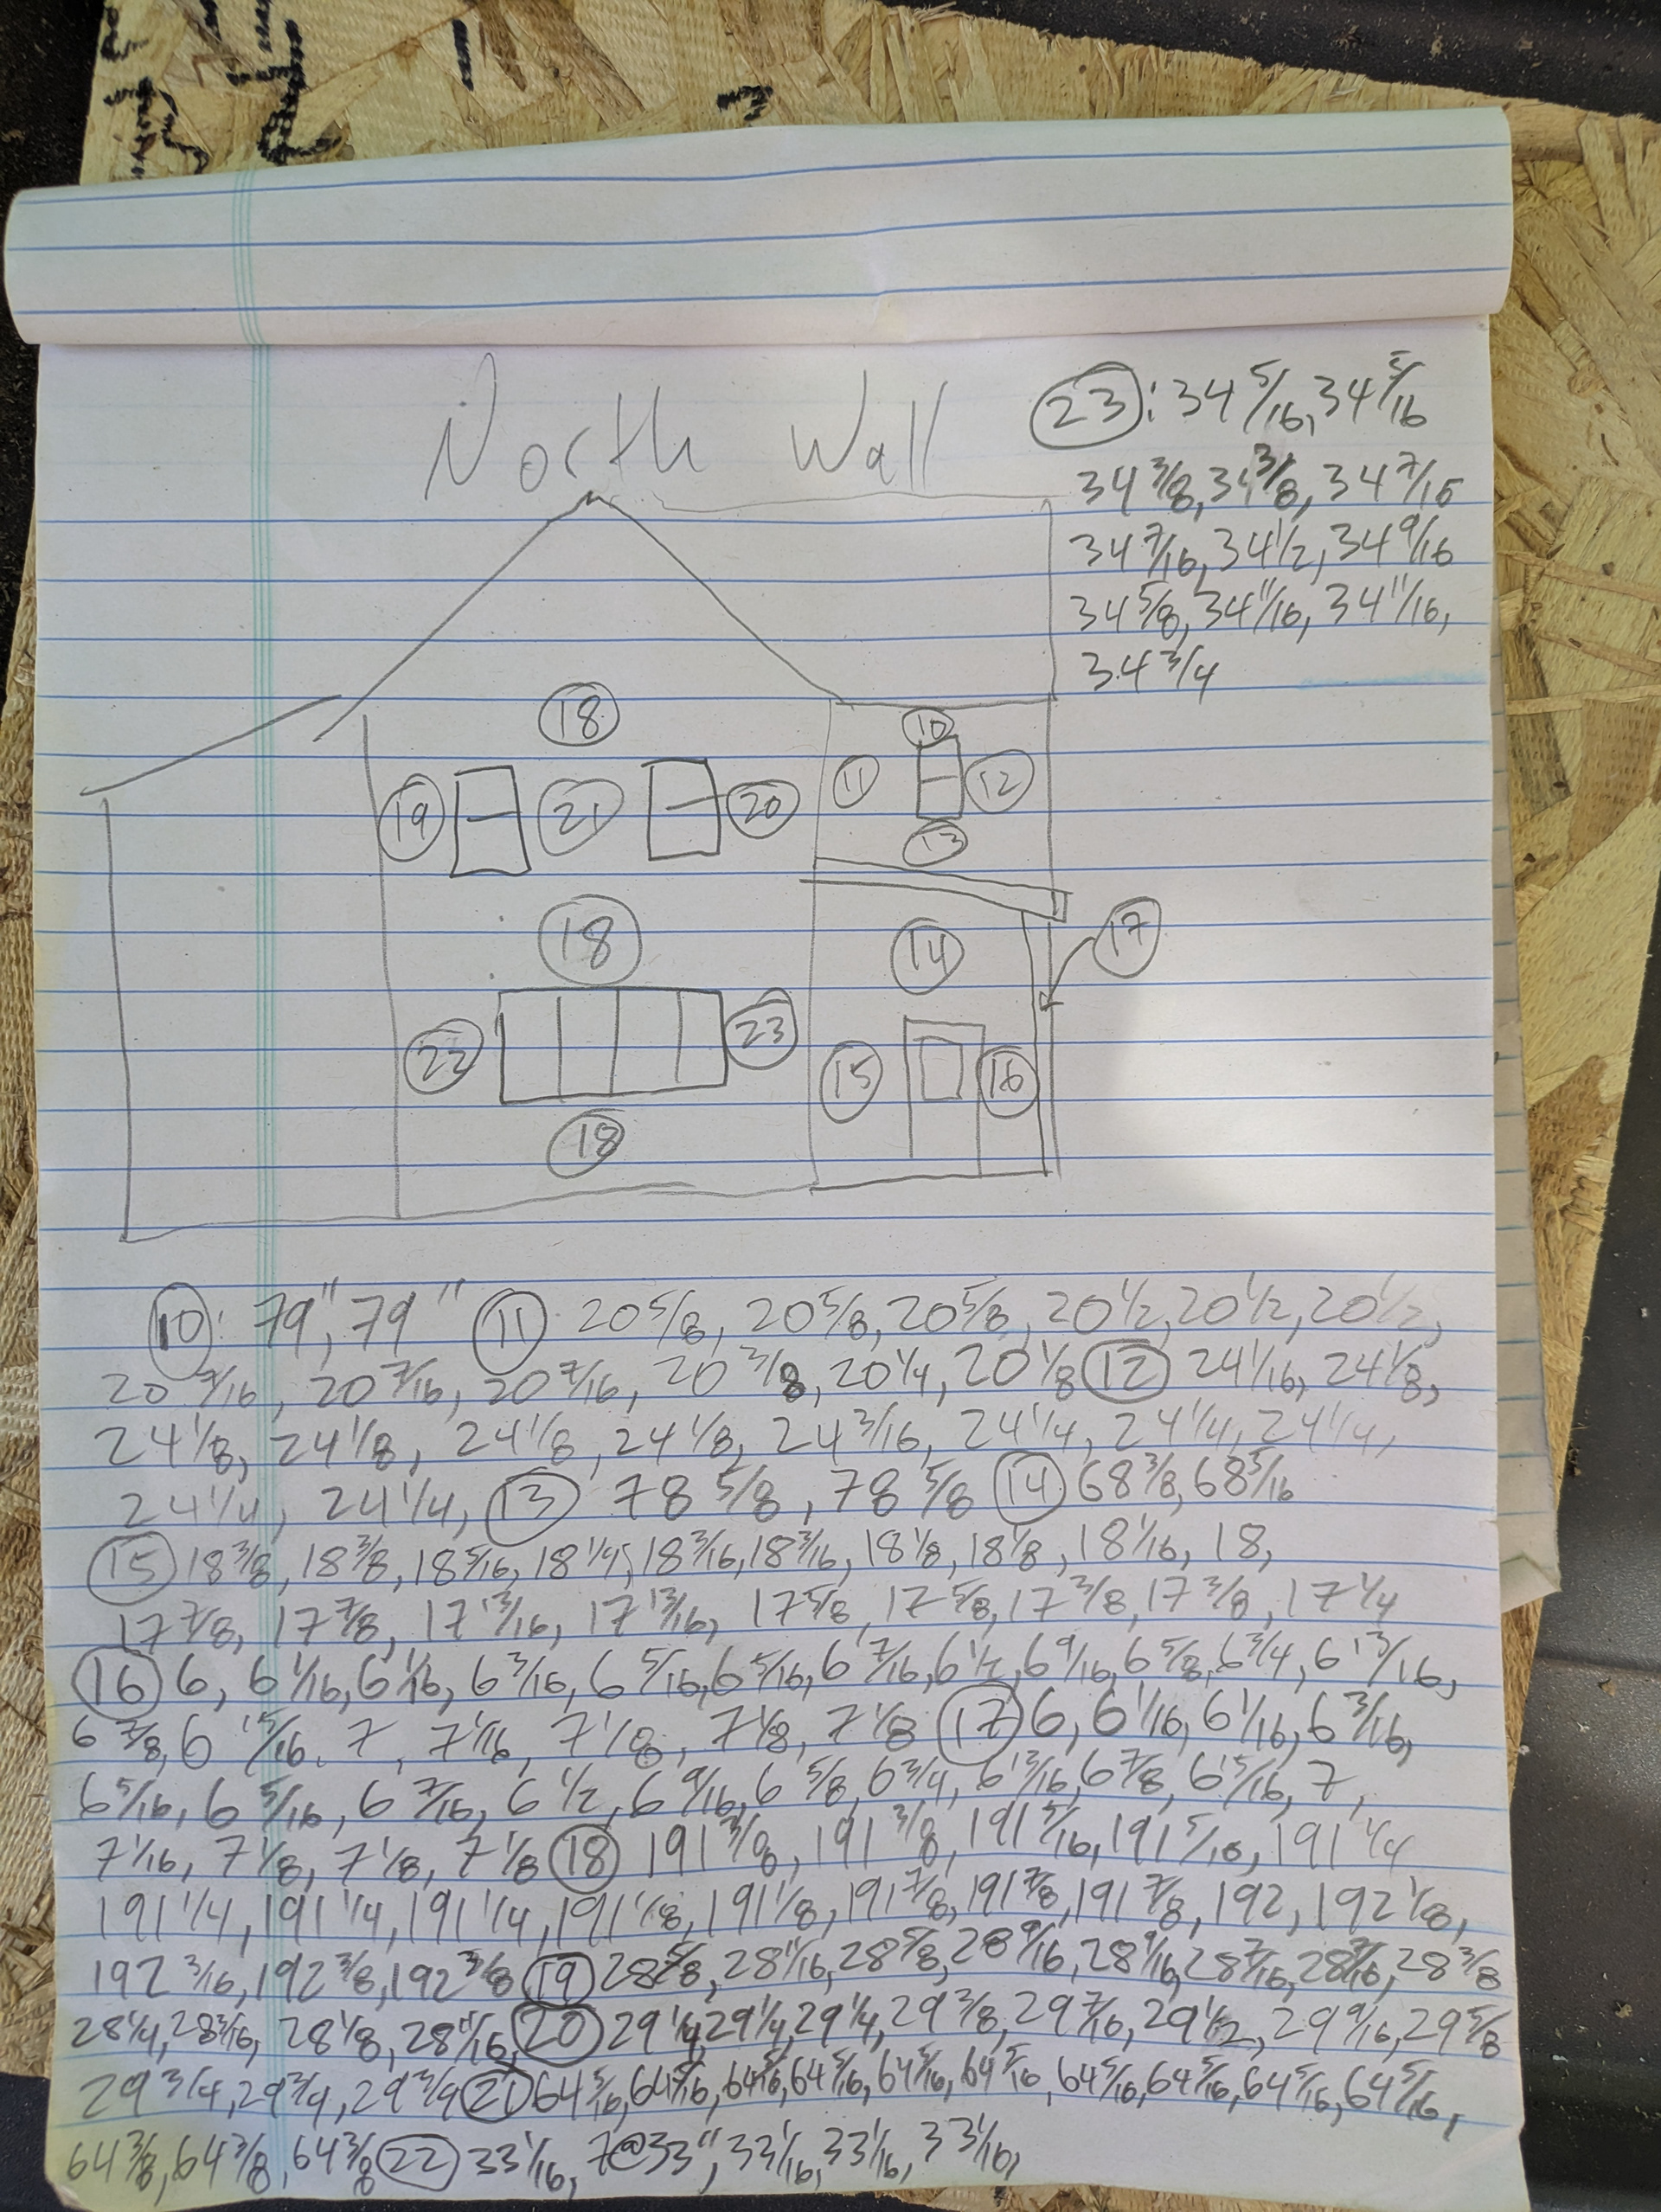 North Wall
23: 34 5/16, 34 5/16
34 3/8, 34 3/8, 34 7/16
34 7/16, 34 1/2, 34 9/16
34 5/8, 34 11/16, 34 11/16,
34 3/4
18
10
11
12
19
21
20
13
18
14
17
22
23
15
16
18
10: 79", 79" 11 20 5/8, 20 5/8, 20 5/8, 20 1/2, 20 1/2, 20 1/2,
20 7/16, 20 7/16, 20 7/16, 20 3/8, 20 1/4, 20 1/8 12 24 1/16, 24 1/8,
24 1/8, 24 1/8, 24 1/8, 24 1/8, 24 3/16, 24 1/4, 24 1/4, 24 1/4,
24 1/4, 24 1/4, 13 78 5/8, 78 5/8 14 68 3/8, 68 5/16
15 18 3/8, 18 3/8, 18 5/16, 18 1/4, 18 3/16, 18 3/16, 18 1/8, 18 1/8, 18 1/16, 18,
17 7/8, 17 7/8, 17 13/16, 17 13/16, 17 5/8, 17 5/8, 17 3/8, 17 3/8, 17 1/4
16 6, 6 1/16, 6 1/16, 6 3/16, 6 5/16, 6 5/16, 6 7/16, 6 1/2, 6 9/16, 6 5/8, 6 3/4, 6 13/16,
6 7/8, 6 15/16, 7, 7 1/16, 7 1/8, 7 1/8, 7 1/8 17 6, 6 1/16, 6 1/16, 6 3/16,
6 5/16, 6 5/16, 6 7/16, 6 1/2, 6 9/16, 6 5/8, 6 3/4, 6 13/16, 6 7/8, 6 15/16, 7,
7 1/16, 7 1/8, 7 1/8, 7 1/8 18 191 3/8, 191 3/8, 191 5/16, 191 5/16, 191 1/4
191 1/4, 191 1/4, 191 1/4, 191 1/8, 191 1/8, 191 7/8, 191 7/8, 191 7/8, 192, 192 1/8,
192 3/16, 192 3/8, 192 3/8 19 28 5/8, 28 11/16, 28 5/8, 28 9/16, 28 9/16, 28 7/16, 28 7/16, 28 3/8
28 1/4, 28 3/16, 28 1/8, 28 11/16, 20 29 1/4, 29 1/4, 29 1/4, 29 3/8, 29 7/16, 29 1/2, 29 9/16, 29 5/8
29 3/4, 29 3/4, 29 3/4 21 64 5/16, 64 5/16, 64 5/16, 64 5/16, 64 5/16, 64 5/16, 64 5/16, 64 5/16, 64 5/16, 64 5/16,
64 3/8, 64 3/8, 64 3/8 22 33 1/16, 7@33", 33 1/16, 33 1/16, 33 1/16,